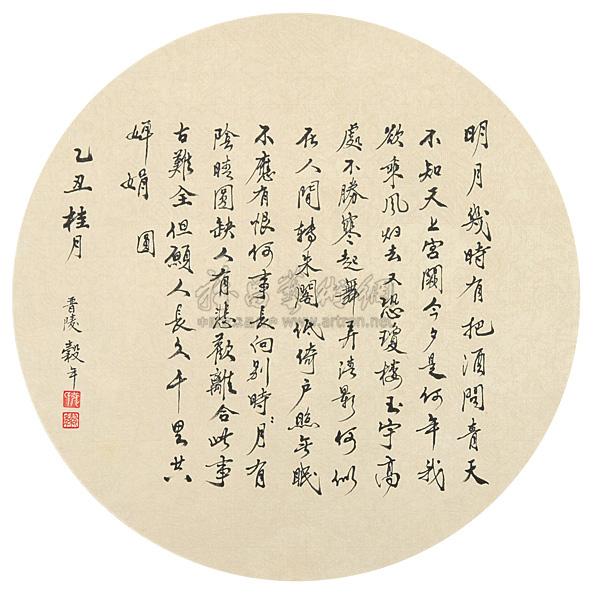 明月幾時有把酒問青天
不知天上宮闕今夕是何年我
欲乘風归去又恐瓊樓玉宇高
處不勝寒起舞弄清影何似
在人間轉朱閣低倚户照无眠
不應有恨何事長向別時月有
陰晴圓缺人有悲歡離合此事
古難全但願人長久千里共
嬋娟 圓
乙丑桂月
晉陵穀年
雅昌藝術網
www.artron.net